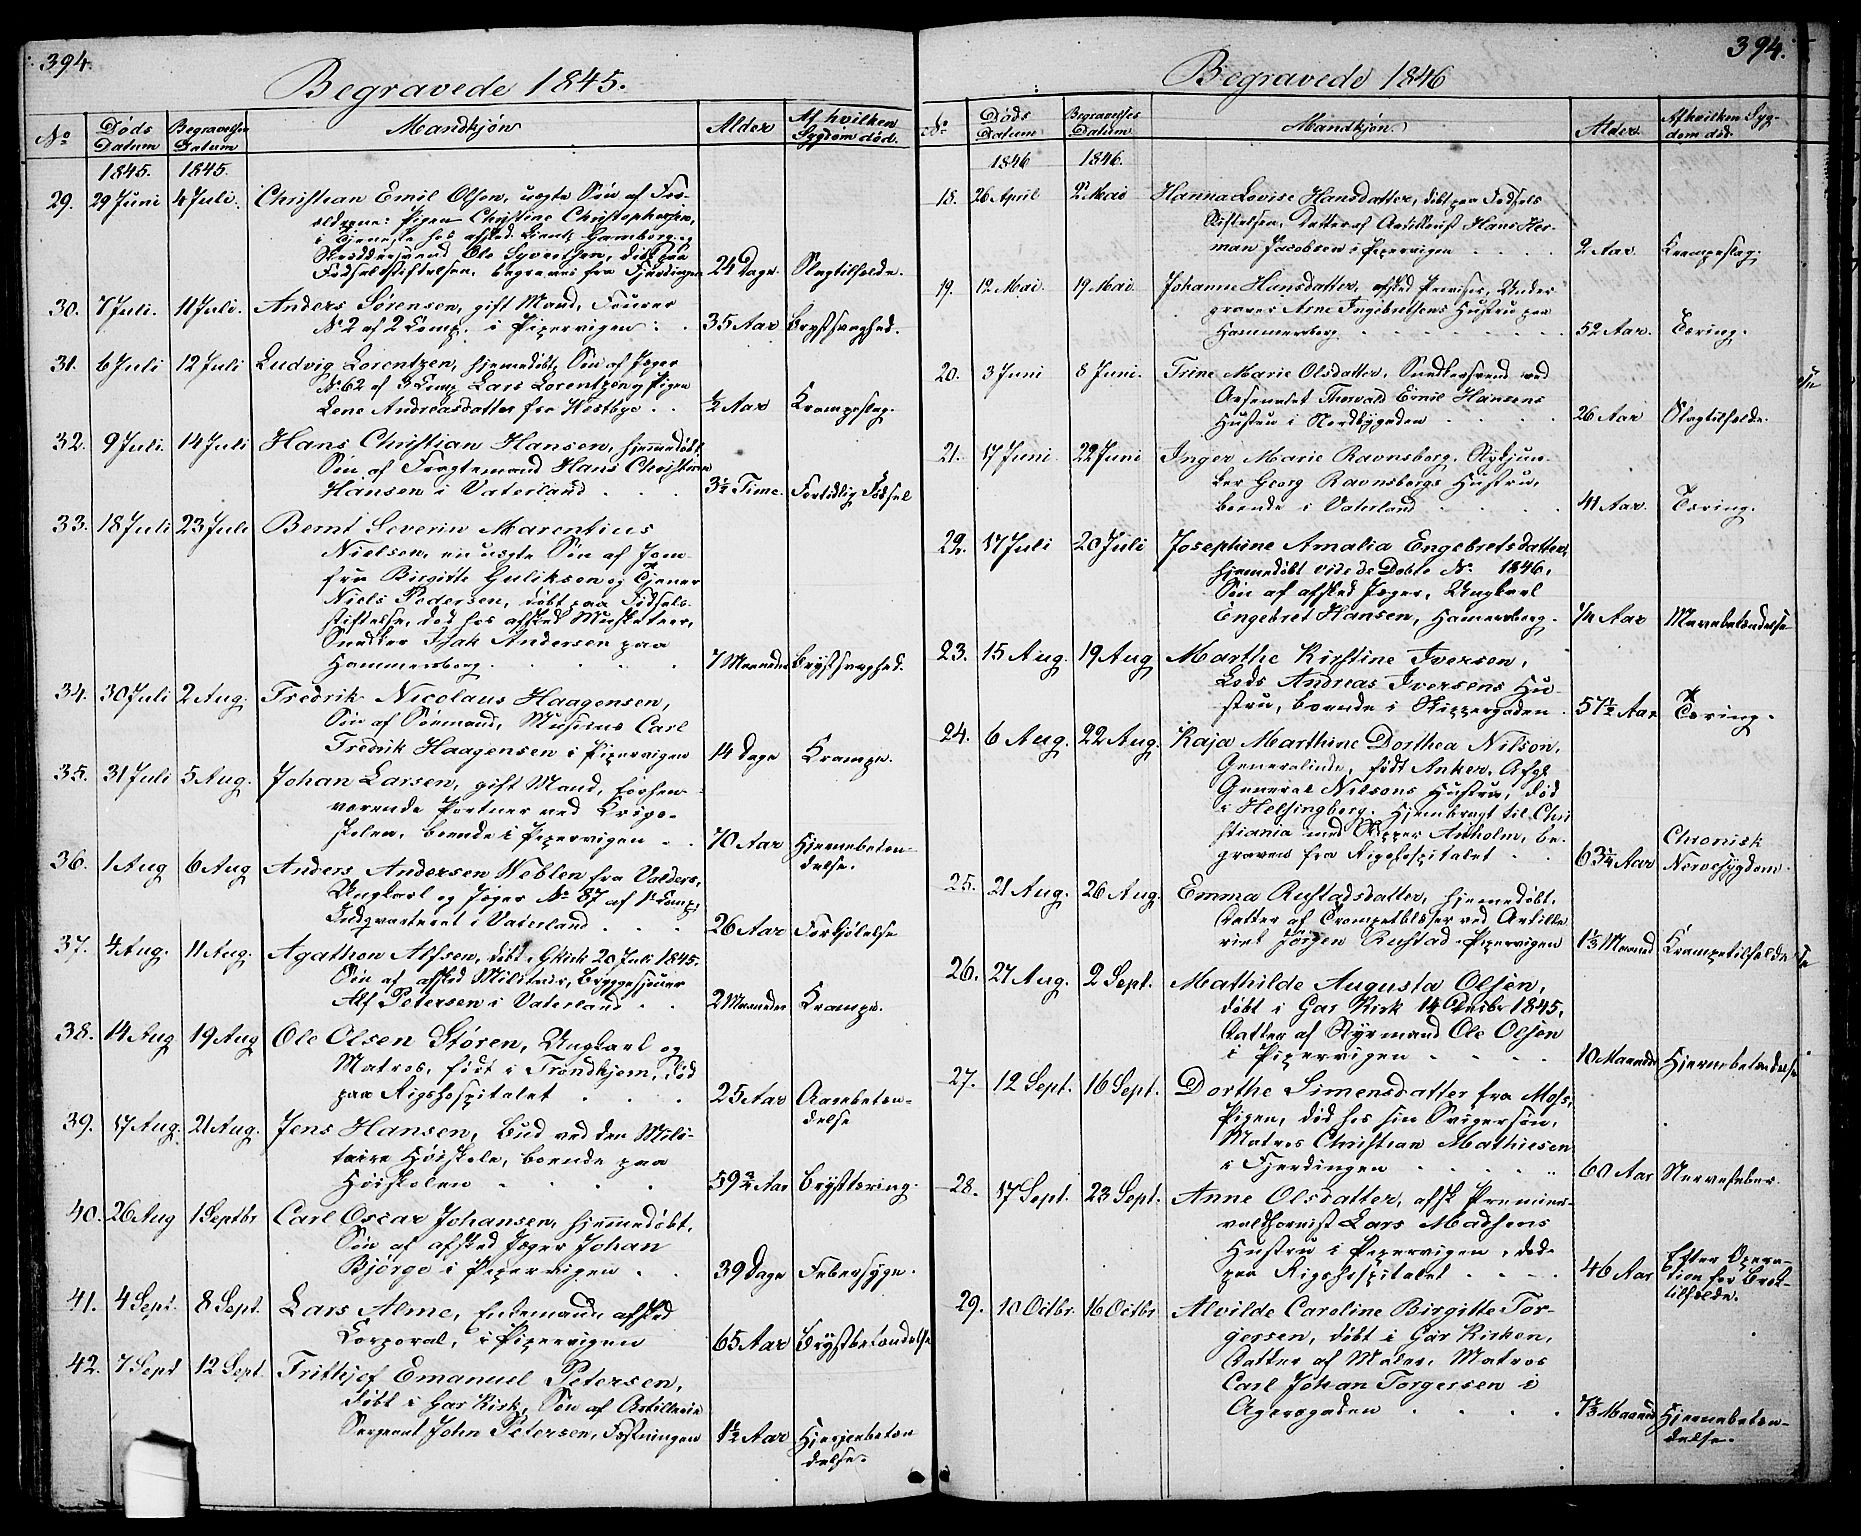 394.
Begravede 1845.
No | Døds Datum | Begravelses Datum | Mandkjøn | Alder | Af hvilken Sygdom død.
1845. 1845.
29. 29 Juni 4 Juli. Christian Emil Olsen, uægte Søn af For-
ældrene: Pigen Christine Christophersen,
i Tjeneste hos afsked. Lieutn. Gamborg og
Skræddersvend Ole Syvertsen, døbt paa
Fødselsstiftelsen, begraves fra Fjerdingen 24 Dage. Slagtilfælde.
30. 7 Juli. 11 Juli. Anders Sørensen, gift Mand, Fourer
No 2 af 2 Comp. i Pipervigen 35 Aar Brystsvaghed.
31. 6 Juli 12 Juli Ludvig Lorentzen, hjemmedøbt, Søn af Jæger
No 62 af 3 Comp Lars Lorentzen og Pigen
Lene Andreasdatter fra Westbye ½ Aar Krampeslag.
32. 9 Juli. 14 Juli Hans Christian Hansen, hjemmedøbt.
Søn af Fragtemand Hans Christian
Hansen i Vaterland 3½ Time. Fortidlig Fødsel
33. 18 Juli 23 Juli Bernt Severin Marentius
Nielsen, en uægte Søn af Jom-
fru Birgitte Guliksen og Tjener
Niels Pedersen, døbt paa Fødsels-
stiftelse, død hos afsked Musketeer,
Snedker Isak Andersen paa
Hammersborg. 7 Maaneder Brystsvaghed.
34. 30 Juli 2 Aug. Fredrik Nicolaus Haagensen,
Søn af Sømand, Carl
Fredrik Haagensen i Pipervigen 14 Dage Krampe.
35. 31 Juli 5 Aug. Johan Larsen, gift Mand, forhen-
værende Portner ved Krigs-
skolen, boende i Pipervigen 70 Aar Hjernebeten-
delse.
36. 1 Aug 6 Aug Anders Andersen Weblen fra Valders,
Ungkarl og Jæger No 87 af 1 Comp.
Indqvarteret i Vaterland 26 Aar Forkjølelse
37. 4 Aug. 11 Aug. Agathon Alfsen, døbt i GKirk 20 Juli 1845.
Søn af afsked Militair, Bryggesjouer
Alf Petersen i Vaterland 2 Maaneder Krampe.
38. 14 Aug 19 Aug Ole Olsen Støren, Ungkarl og
Matros, født i Trondhjem, død
paa Rigshospitalet 25 Aar Aarebeten-
delse
39. 17 Aug. 21 Aug. Jens Hansen, Bud ved den Mili-
taire Høiskole, boende paa
Høiskolen 59¾ Aar Brysttæring.
40. 26 Aug 1 Septbr Carl Oscar Johansen, hjemmedøbt.
Søn af afsked Jæger Johan
Bjørge i Pipervigen 39 Dage Febersyge.
41. 4 Sept. 8 Sept. Lars Alme, Enkemand, afsked
Corporal, i Pipervigen 65 Aar Brystbetendelse
42. 7 Sept 12 Sept. Frithjof Emanuel Petersen,
døbt i Gar Kirk, Søn af Artillerie
Sergeant John Petersen, Fæstningen 1½ Aar Hjernebeten
delse.
394.
Begravede 1846
No | Døds Datum | Begravelses Datum | Mandkjøn | Alder. | Af hvilken Syg-
dom død.
1846 1846.
18. 26 April 2 Mai Hanna Lovise Hansdatter, døbt paa Fødsels
Stiftelsen, Datter af Artillerist Hans Her-
man Jacobsen i Pipervigen 2 Aar Krampeslag.
19. 12 Mai. 19 Mai Johanne Hansdatter, afsked Under
Arne Ingebretsens Hustru paa
Hammersborg. 52 Aar. Tæring.
20. 3 Juni 8 Juni. Trine Marie Olsdatter, Snedkersvend ved
Arsenalet Thorvald Emil Hansens
Hustru i Nordbygaden 26 Aar Slagtilfælde.
21. 17 Juni 22 Juni Inger Marie Ravnsborg, Stykjun-
ker Georg Ravnsborgs Hustru,
boende i Vaterland 41 Aar. Tæring.
22. 17 Juli 20 Juli Josephine Amalia Engebretsdatter,
hjemmedøbt vide de Døbte No. 1846.
Søn af afsked Jæger, Ungkarl
Engebret Hansen, Hamersborg. ¼ Aar Mavebetændelse
23. 15 Aug. 19 Aug Marthe Kirstine Iversen,
Lods Andreas Iversens Hu-
stru, boende i Skippergaden 57½ Aar Tæring.
24. 6 Aug. 22 Aug. Kaja Marthine Dorthea Nilson,
Generalinde, født Anker, Afg.
General Nilsons Hustru, død
i Helsingborg. Hjembragt til Chri
stiania med Skipper Anholm, be-
graven fra Rigshospitalet 63¼ Aar Chronisk
Nervesygdom.
25. 21 Aug. 26 Aug. Emma Rustadsdatter, hjemmedøbt.
Datter af Trompetblæser ved Artille
riet Jørgen Rustad. Pipervigen 1⅓ Maaned Krampetilfælde
26. 27 Aug. 2 Sept. Mathilde Augusta Olsen,
døbt i Gar Kirk 14 Decbr 1845.
Datter af Styrmand Ole Olsen
i Pipervigen 10 Maaneder Hjernebetendelse
27. 12 Sept. 16 Sept. Dorthe Simensdatter fra Moss,
Pigen, død hos sin Svigersøn,
Matros Christian Mathiesen
i Fjerdingen 60 Aar Nervefeber.
28. 17 Sept. 23 Sept. Anne Olsdatter, afsk Premier-
Lars Madsens
Hustru i Pipervigen, død
paa Rigshospitalet 46 Aar Efter Opera-
tion for Brok-
tilfælde.
29. 10 Octbr. 16 Octbr. Alvilde Caroline Birgitte Tor-
gersen, døbt i Gar Kirken,
Datter af Maler, Matros
Carl Johan Torgersen i
Agersgaden 7⅓ Maaned Hjernebeten-
delse.